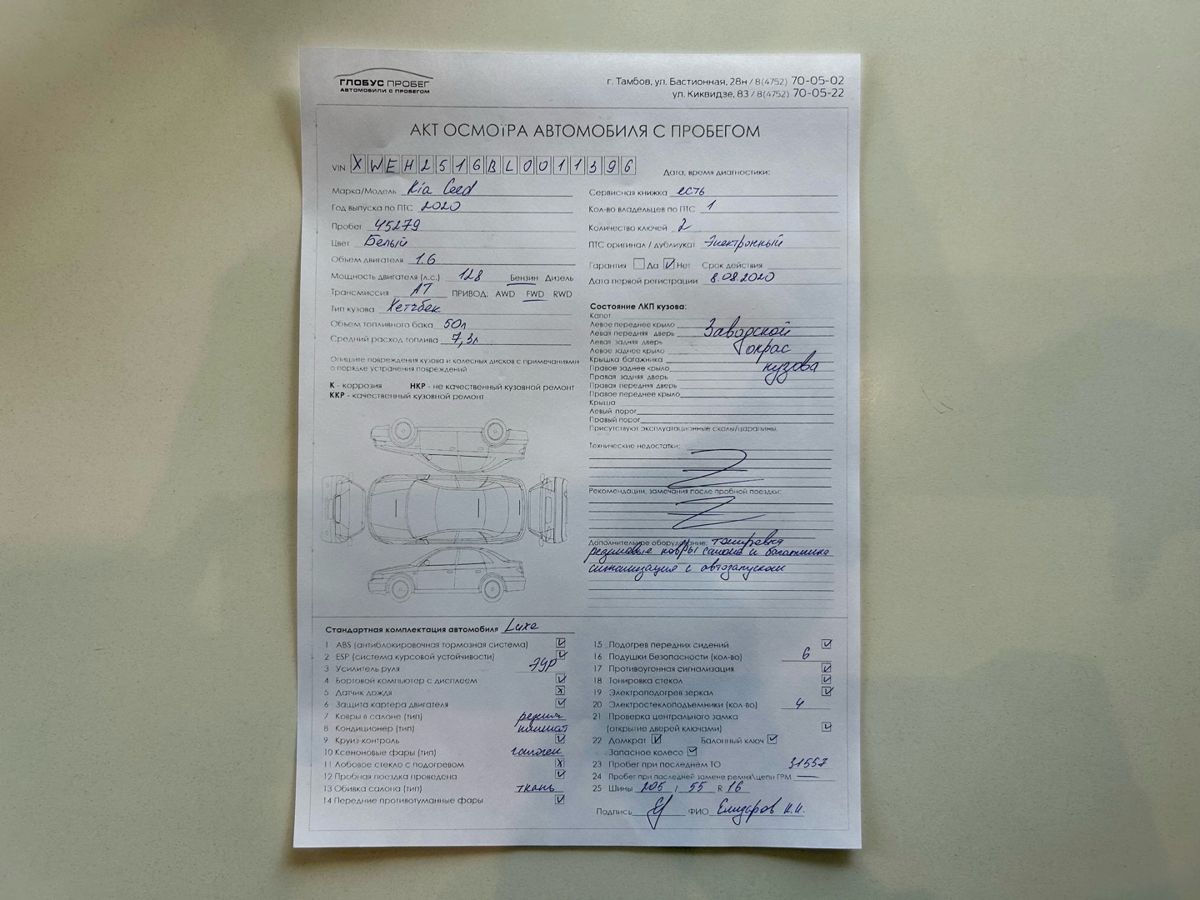 ГЛОБУС ПРОБЕГ
АВТОМОБИЛИ С ПРОБЕГОМ
г. Тамбов, ул. Бастионная, 28н / 8(4752) 70-05-02
ул. Киквидзе, 83 / 8(4752) 70-05-22
АКТ ОСМОТРА АВТОМОБИЛЯ С ПРОБЕГОМ
VIN XWEH2516BL0011396
Дата, время диагностики:
Марка/Модель Kia Ceed
Год выпуска по ПТС 2020
Пробег 45279
Цвет Белый
Объем двигателя 1.6
Мощность двигателя (л.с.) 128 Бензин Дизель
Трансмиссия АТ ПРИВОД: AWD FWD RWD
Тип кузова Хетчбек
Объем топливного бака 50л
Средний расход топлива 7,3л
Опишите повреждения кузова и колесных дисков с примечаниями
о порядке устранения повреждений
К - коррозия НКР - не качественный кузовной ремонт
ККР - качественный кузовной ремонт
Сервисная книжка есть
Кол-во владельцев по ПТС 1
Количество ключей 2
ПТС оригинал / дубликат Электронный
Гарантия Да Нет Срок действия
Дата первой регистрации 8.08.2020
Состояние ЛКП кузова:
Капот
Левое переднее крыло Заводской
Левая передняя дверь
Левая задняя дверь
Левое заднее крыло окрас
Крышка багажника
Правое заднее крыло кузова
Правая задняя дверь
Правая передняя дверь
Правое переднее крыло
Крыша
Левый порог
Правый порог
Присутствуют эксплуатационные сколы/царапины.
Технические недостатки:
Рекомендации, замечания после пробной поездки:
Дополнительное оборудование: тонировка
резиновые ковры салона и багажника
сигнализация с автозапуском
Стандартная комплектация автомобиля Luxe
1 ABS (антиблокировочная тормозная система)
2 ESP (система курсовой устойчивости)
3 Усилитель руля ЭУР
4 Бортовой компьютер с дисплеем
5 Датчик дождя
6 Защита картера двигателя
7 Ковры в салоне (тип) резин
8 Кондиционер (тип) климат
9 Круиз-контроль
10 Ксеноновые фары (тип) галоген
11 Лобовое стекло с подогревом
12 Пробная поездка проведена
13 Обивка салона (тип) ткань
14 Передние противотуманные фары
15 Подогрев передних сидений
16 Подушки безопасности (кол-во) 6
17 Противоугонная сигнализация
18 Тонировка стекол
19 Электроподогрев зеркал
20 Электростеклоподъемники (кол-во) 4
21 Проверка центрального замка
(открытие дверей ключами)
22 Домкрат Балонный ключ
Запасное колесо
23 Пробег при последнем ТО 31557
24 Пробег при последней замене ремня\цепи ГРМ —
25 Шины 205 / 55 R 16
Подпись ФИО Елизаров Н.Н.